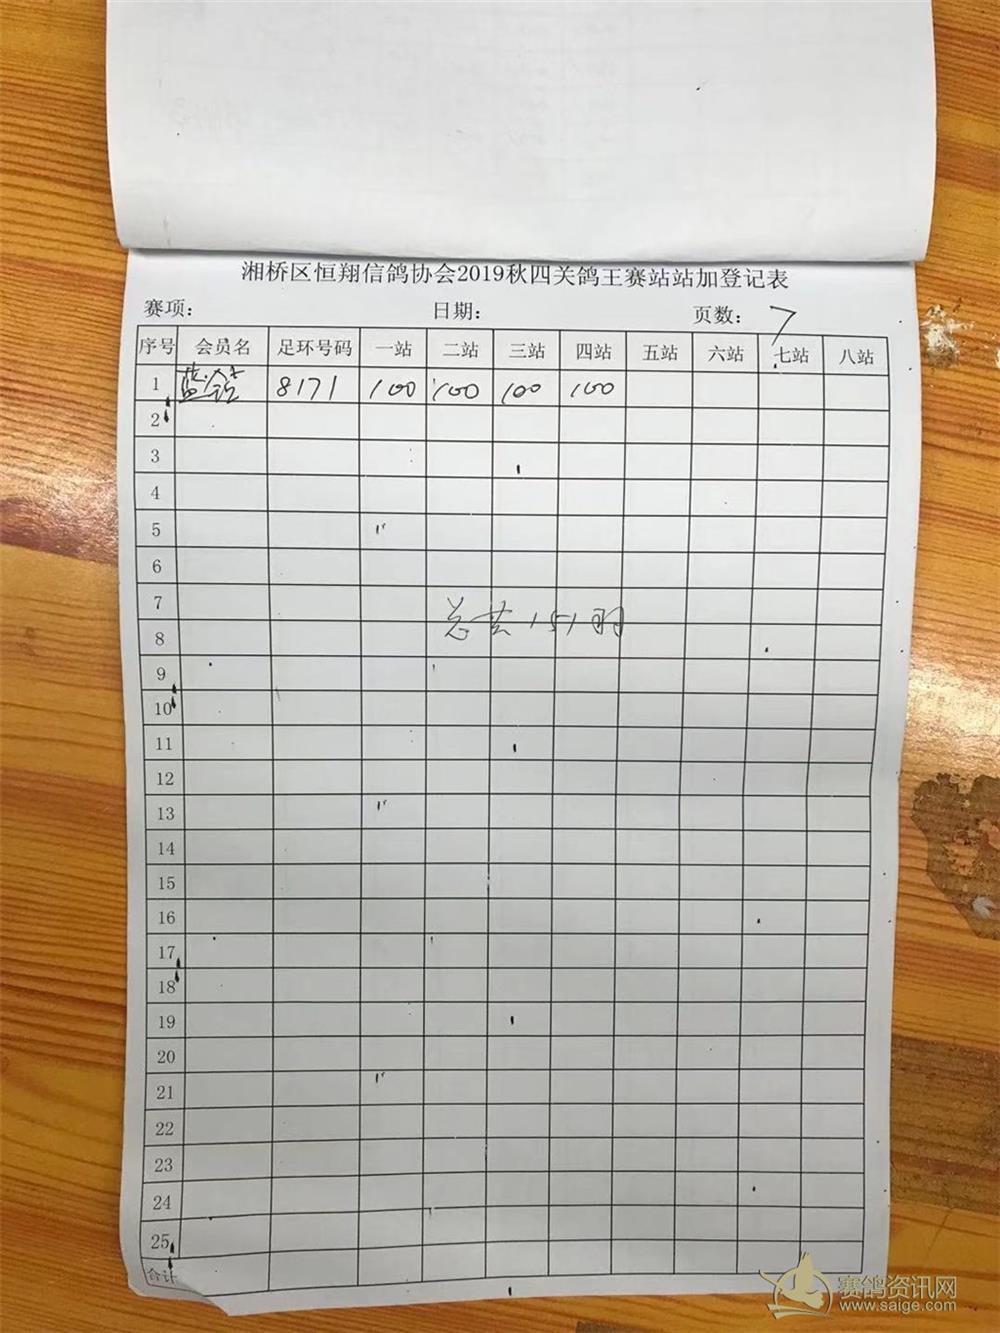 湘桥区恒翔信鸽协会2019秋四关鸽王赛站站加登记表
赛项: 日期: 页数: 7
序号 会员名 足环号码 一站 二站 三站 四站 五站 六站 七站 八站
1 8171 100 100 100 100
2
3
4
5
6
7
总共151羽
8
9
10
11
12
13
14
15
16
17
18
19
20
21
22
23
24
25
合计
赛鸽资讯网
www.saige.com